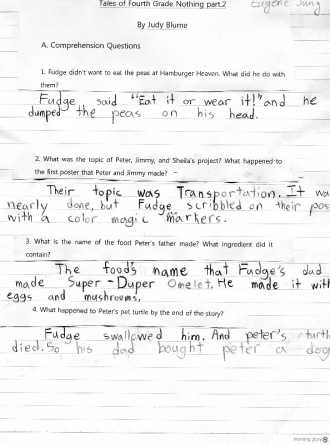 Tales of Fourth Grade Nothing part.2
Eugene Jung
By Judy Blume
A. Comprehension Questions
1. Fudge didn't want to eat the peas at Hamburger Heaven. What did he do with
them?
Fudge said "Eat it or wear it!" and he
dumped the peas on his head.
2. What was the topic of Peter, Jimmy, and Sheila's project? What happened to
the first poster that Peter and Jimmy made?
Their topic was Transportation. It wa
nearly done, but Fudge scribbled on their pos
with a color magic markers.
3. What is the name of the food Peter's father made? What ingredient did it
contain?
The food's name that Fudge's dad
made Super-Duper Omelet. He made it with
eggs and mushrooms.
4. What happened to Peter's pet turtle by the end of the story?
Fudge swallowed him. And peter's turtl
died. So his dad bought peter a dog
morning glory